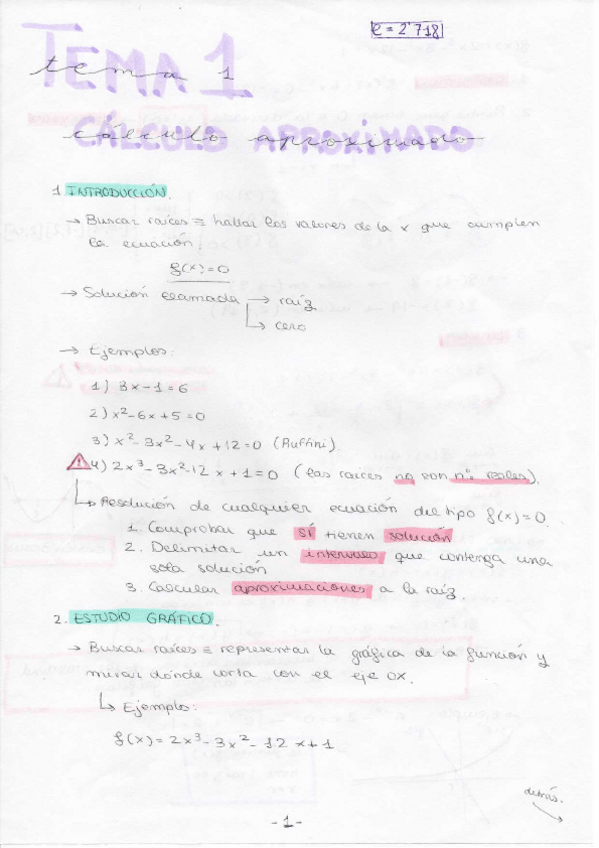 e = 2'718
TEMA 1
tema 1
CÁLCULO APROXIMADO
cálculo aproximado
1. INTRODUCCIÓN.
→ Buscar raíces ≡ hallar los valores de la x que cumplen
la ecuación.
f(x)=0
→ Solución llamada → raíz
↳ cero
→ Ejemplos:
1) 3x-1=6
2) x²-6x+5=0
3) x²-3x²-4x+12=0 (Ruffini).
4) 2x³-3x²-12x+1=0 (las raíces no son nº reales).
↳ Resolución de cualquier ecuación del tipo f(x)=0.
1. Comprobar que sí tienen solución
2. Delimitar un intervalo que contenga una
sola solución
3. Calcular aproximaciones a la raíz.
2. ESTUDIO GRÁFICO.
→ Buscar raíces ≡ representar la gráfica de la función y
mirar dónde corta con el eje OX.
↳ Ejemplo:
f(x)=2x³-3x²-12x+1
detrás.
-1-